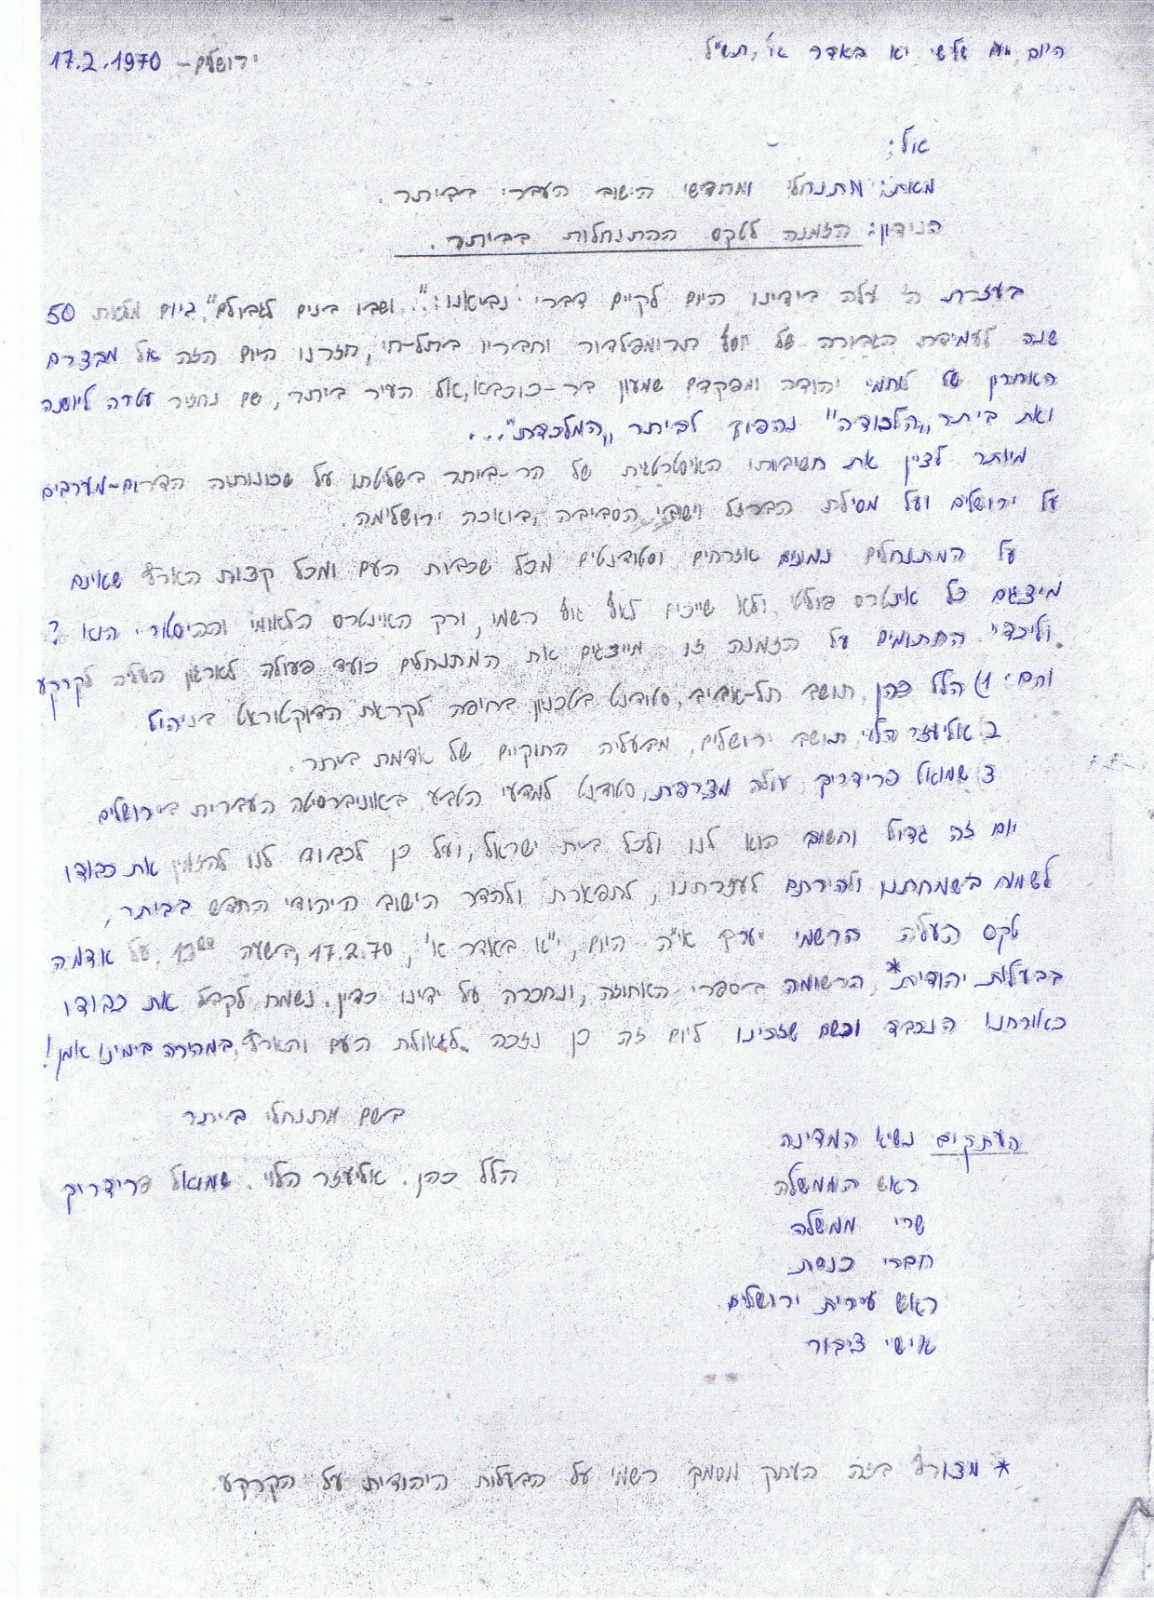 היום יום שלישי יא באדר א', תש"ל
ירושלים - 17.2.1970
אל:
מאת: מתנחלי ומחדשי הישוב העברי בביתר.
הנידון: הזמנה לטקס ההתנחלות בביתר.
בעזרת ה' עלה בידינו היום לקיים דברי נביאנו: "..ושבו בנים לגבולם", ביום מלאת 50
שנה לעמידת הגבורה של יוסף תרומפלדור וחבריו בתל-חי, חזרנו היום הזה אל מבצרם
האחרון של לוחמי יהודה ומפקדם שמעון בר-כוכבא, אל העיר ביתר, שם נחזיר עטרה ליושנה
ואת ביתר "הלכודה" נהפוך לביתר "המלכדת"...
מיותר לציין את חשיבותו האיסטרטגית של הר-ביתר בשליטתו על שכונותיה הדרום-מערביים
של ירושלים ועל מסילת הברזל וישובי הסביבה, בואכה ירושלימה.
על המתנחלים נמנים אזרחים וסטודנטים מכל שכבות העם ומכל קצות הארץ שאינם
מייצגים כל אינטרס פולטי ולא שייכים לאף גוף רשמי, ורק האינטרס הלאומי וההיסטורי הוא
החתומים על הזמנה זו מייצגים את המתנחלים כועד פעולה לארגון העליה לקרקע
והם: 1) הלל כהן, תושב תל-אביב, סטודנט בטכניון בחיפה לקראת הדוקטוראט בניהול
2 אליעזר הלוי, תושב ירושלים, מבעליה החוקיים של אדמת ביתר.
3 שמואל פרידריך, עולה מצרפת, סטודנט למדעי הטבע באוניברסיטה העברית בירושלים
יום זה גדול וחשוב הוא לנו ולכל בית ישראל, ועל כן לכבוד לנו להזמין את כבודו
לשמוח בשמחתנו ולהירתם לעזרתנו, לתפארת ולהדר הישוב היהודי החדש בביתר,
טקס העליה הרשמי יערך אי"ה היום, י"א באדר א', 17.2.70, בשעה 13⁰⁰, על אדמה
בבעלות יהודית*, הרשומה בספרי האחוזה, ונחכרה על ידינו כדין. נשמח לקבל את כבודו
כאורחנו הנכבד וכשם שזכינו ליום זה כן נזכה לגאולת העם והארץ, במהירה בימינו, אמן!
בשם מתנחלי ביתר
הלל כהן. אליעזר הלוי. שמואל פרידריך
העתקים נשיא המדינה
ראש הממשלה
שרי ממשלה
חברי כנסת
ראש עירית ירושלים
אישי ציבור
* מצורף בזה העתק מסמך רשמי על הבעלות היהודית על הקרקע